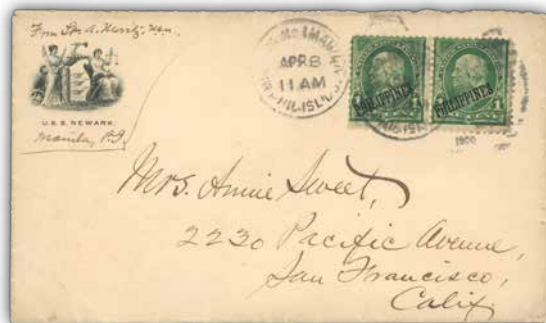 From
U.S.S. NEWARK.
Manila, P.I.
APR 8
11 AM
PHIL. ISL
1900
PHILIPPINES
1
PHILIPPINES
1
Mrs. Annie Sweet,
2220 Pacific Avenue,
San Francisco,
Calif.